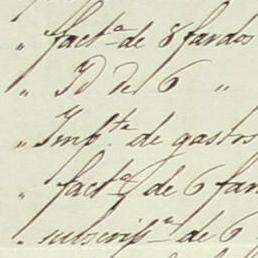 " fact.ª de 8 fardos
" Id de 6 "
" Imp.te de gastos
" fact.ª de 6 far
" subscrip.n de 6